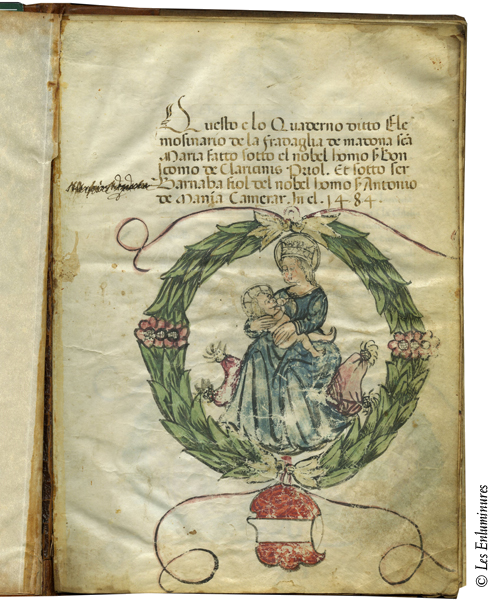 Questo e lo Quaderno ditto Ele
mosinario de la fradaglia de madona scā
Maria fatto sotto el nobel homo s̄ Bon
Iacomo de Claricinis Priol. Et sotto ser
Barnaba fiol del nobel homo s̄ Antonio
de Manza Camerar. In el. 1484.
© Les Enluminures